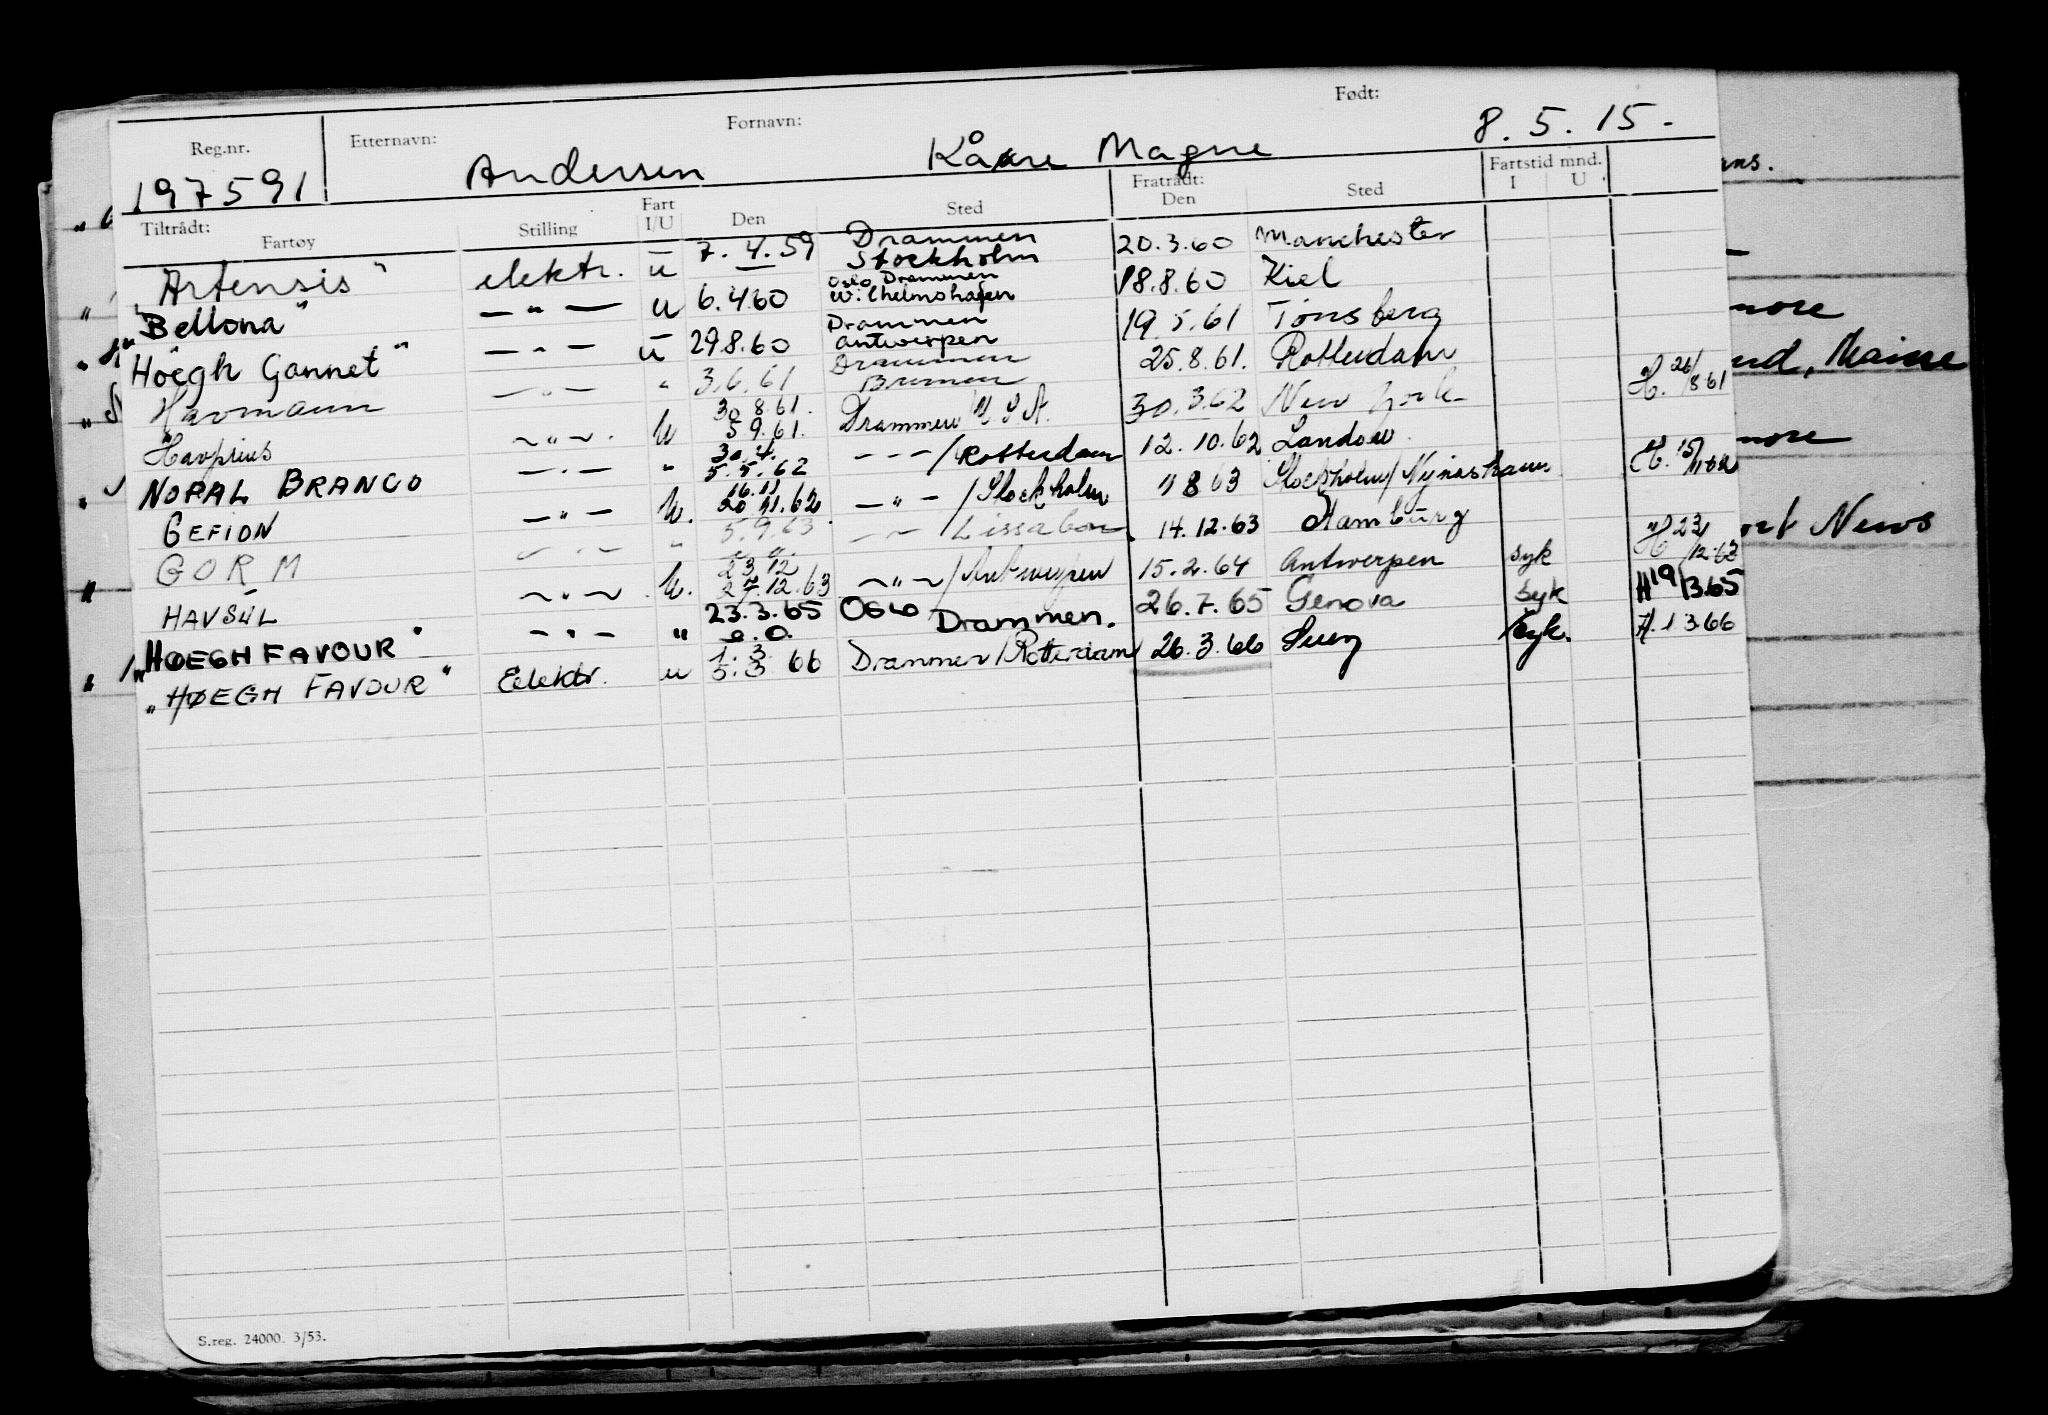 Reg.nr. Etternavn: Fornavn: Født:
197591 Andersen Kåre Magne 8.5.15.
Tiltrådt: Fratrådt: Fartstid mnd.
Fartøy Stilling Fart I/U Den Sted Den Sted I U
"Artensis" elektr. u 7.4.59 Drammen Stockholm 20.3.60 Manchester
"Bellona" — " — u 6.4.60 Oslo Drammen Wilhelmshafen 18.8.60 Kiel
"Höegh Gannet" — " — u 29.8.60 Drammen Antwerpen 19.5.61 Tønsberg
Havmann — " — " 3.6.61 Drammen Bremen 25.8.61. Rotterdam H. 26/8.61
Havprins — " — . U 30.8.61. 5.9.61. Drammen/U.S.A. 30.3.62 New York
NOPAL BRANCO — " — " 30.4. 5.5.62 - - - /Rotterdam 12.10.62 Landow H. 15/11.62
GEFION — " — U. 16.11 20.11.62 — " — /Stockholm 1 8 63 Stockholm/Nynäshamn
GORM — " — " 5.9.63. — " — Lissabon 14.12.63 Hamburg H 23/12.63
HAVSÜL — " — U. 23.12 27.12.63 — " — /Antwerpen 15.2.64 Antwerpen syk
"HØEGH FAVOUR" — " — " 23.3.65 Oslo Drammen. 26.7.65 Genova syk H 19/3.65
"HØEGH FAVOUR" Eelektr. u 1.3 5.3 66 Drammen/Rotterdam 26.3.66 Suez syk. H. 1 3.66
S.reg. 24000. 3/53.